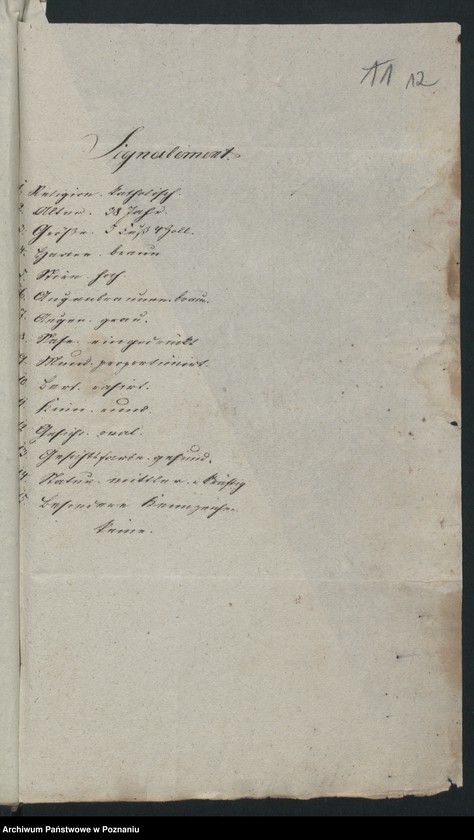 11 12
Signalement.
1. Religion. katholisch.
2. Alter. 38 Jahr.
3. Größe. 5 Fuß 4 Zoll.
4. Haare. braun
5. Stirn hoch
6. Augenbraunen. braun.
7. Augen. grau.
8. Nase. eingedrückt
9. Mund. proportionirt.
10. Bart. rasirt.
11. Kinn. rund
12. Gesicht. oval.
13. Gesichtsfarbe. gesund.
14. Statur. mittler. kräftig
15. Besondere Kennzeichen
keine.
Archiwum Państwowe w Poznaniu